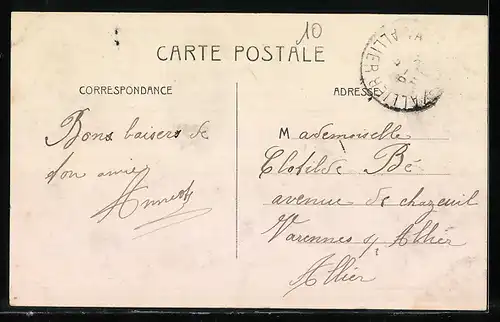 10
CARTE POSTALE
CORRESPONDANCE
ADRESSE
Bons baisers de
ton amie
Mademoiselle
Clotilde Bé
avenue de chazeuil
Varennes s/ Allier
Allier
ALLIER